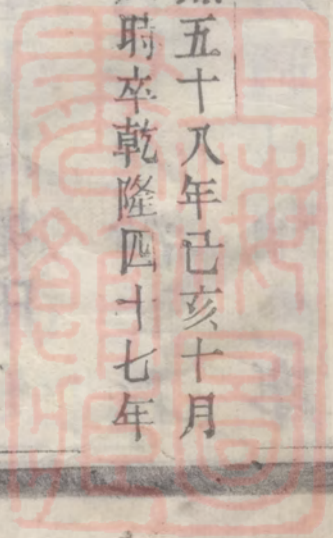 五十八年己亥十月
時卒乾隆四十七年